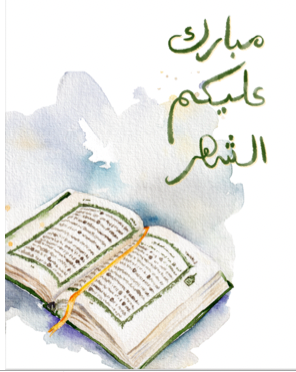 مبارك
عليكم
الشهر